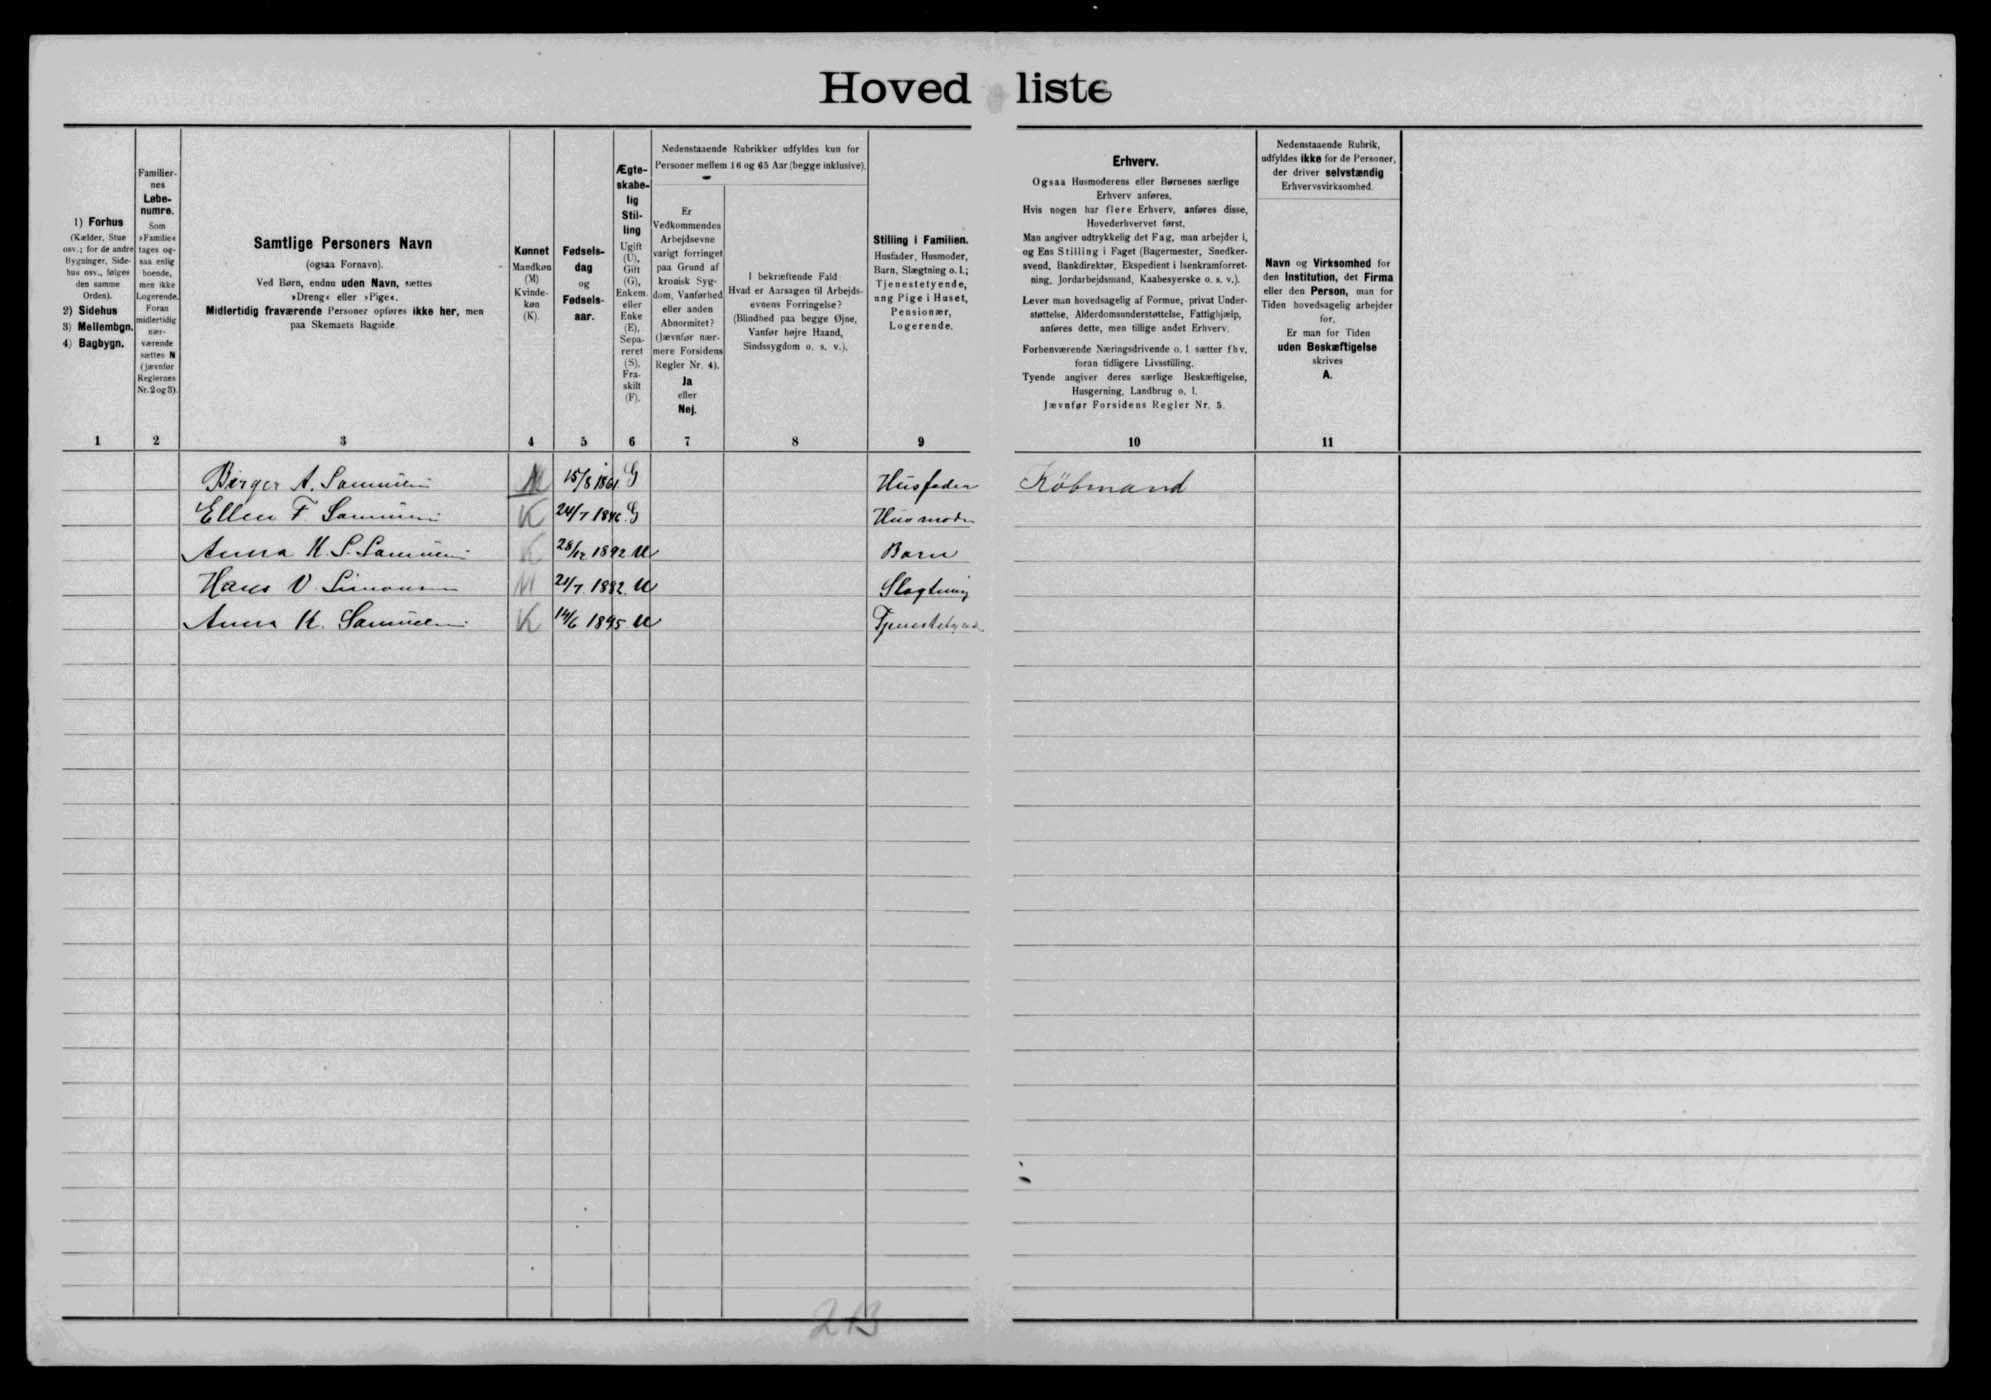 Hovedliste
1) Forhus
(Kælder, Stue
osv.; for de andre
Bygninger, Side-
hus osv., følges
den samme
Orden).
2) Sidehus
3) Mellembgn.
4) Bagbygn.
Familier-
nes
Løbe-
numre.
Som
»Familie«
tages og-
saa enlig
boende,
men ikke
Logerende.
Foran
midlertidig
nær-
værende
sættes N
(jævnfør
Reglernes
Nr. 2 og 3).
Samtlige Personers Navn
(ogsaa Fornavn).
Ved Børn, endnu uden Navn, sættes
»Dreng« eller »Pige«.
Midlertidig fraværende Personer opføres ikke her, men
paa Skemaets Bagside.
Kønnet
Mandkøn
(M)
Kvinde-
køn
(K).
Fødsels-
dag
og
Fødsels-
aar.
Ægte-
skabe-
lig
Stil-
ling
Ugift
(U),
Gift
(G),
Enkem.
eller
Enke
(E),
Sepa-
reret
(S),
Fra-
skilt
(F).
Nedenstaaende Rubrikker udfyldes kun for
Personer mellem 16 og 65 Aar (begge inklusive).
Er
Vedkommendes
Arbejdsevne
varigt forringet
paa Grund af
kronisk Syg-
dom, Vanførhed
eller anden
Abnormitet?
(Jævnfør nær-
mere Forsidens
Regler Nr. 4).
Ja
eller
Nej.
I bekræftende Fald:
Hvad er Aarsagen til Arbejds-
evnens Forringelse?
(Blindhed paa begge Øjne,
Vanfør højre Haand,
Sindssygdom o. s. v.).
Stilling i Familien.
Husfader, Husmoder,
Barn, Slægtning o. l.;
Tjenestetyende,
ung Pige i Huset,
Pensionær,
Logerende.
Erhverv.
Ogsaa Husmoderens eller Børnenes særlige
Erhverv anføres.
Hvis nogen har flere Erhverv, anføres disse,
Hovederhvervet først.
Man angiver udtrykkelig det Fag, man arbejder i,
og Ens Stilling i Faget (Bagermester, Snedker-
svend, Bankdirektør, Ekspedient i Isenkramforret-
ning, Jordarbejdsmand, Kaabesyerske o. s. v.).
Lever man hovedsagelig af Formue, privat Under-
støttelse, Alderdomsunderstøttelse, Fattighjælp,
anføres dette, men tillige andet Erhverv.
Forhenværende Næringsdrivende o. l. sætter fhv.
foran tidligere Livsstilling.
Tyende angiver deres særlige Beskæftigelse,
Husgerning, Landbrug o. l.
Jævnfør Forsidens Regler Nr. 5.
Nedenstaaende Rubrik,
udfyldes ikke for de Personer,
der driver selvstændig
Erhvervsvirksomhed.
Navn og Virksomhed for
den Institution, det Firma
eller den Person, man for
Tiden hovedsagelig arbejder
for.
Er man for Tiden
uden Beskæftigelse
skrives
A.
1 2 3 4 5 6 7 8 9 10 11
Birger A. Samuelsen M 15/8 1861 G Husfader Köbmand
Ellen F Samuelsen K 24/7 G Husmoder
Anna K. S. Samuelsen K 28/12 1892 U Barn
Hans V. Simonsen M 21/7 1882 U Slægtning
Anna K. Samuelsen K 14/6 1895 U Tjenestetyende